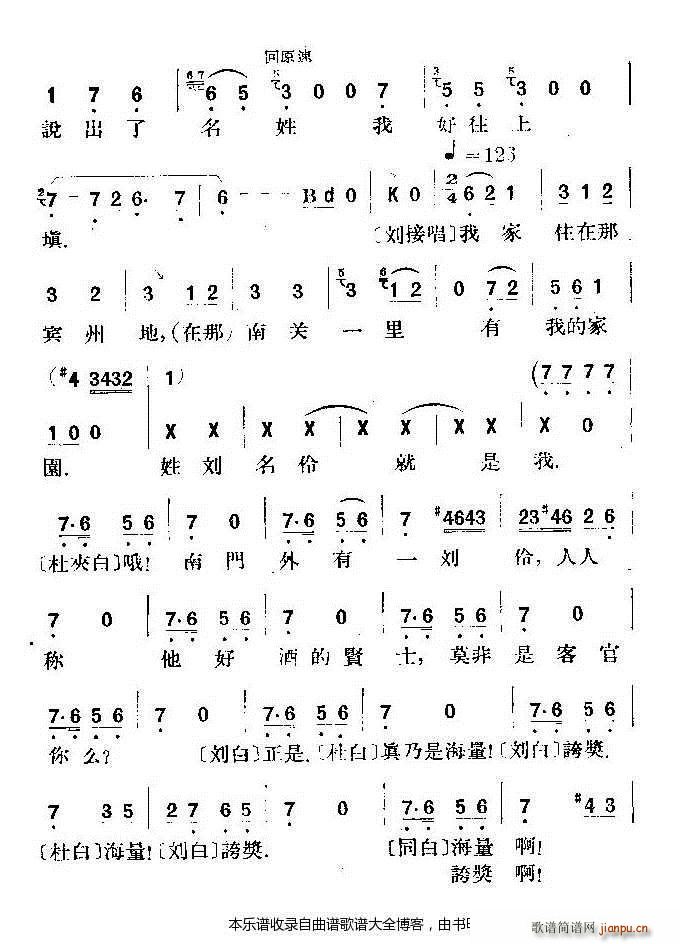 回原速
1 7 6 | 6 5 3 0 0 7 | 5 5 3 0 0 |
說出了名姓我好往上
♩=123
7 - 7 2 6· 7 | 6 - - B d 0 | K 0 | 2/4 6 2 1 | 3 1 2 |
塡.〔刘接唱〕我家住在那
3 2 | 3 1 2 | 3 3 | 3 1 2 | 0 7 2 | 5 6 1 |
宾州地,(在那)南关一里有我的家
(#4 3432 | 1) (7 7 7 7
1 0 0 | X X | X X | X X | X X | X 0 |
園.姓刘名伶就是我.
7·6 5 6 | 7 0 | 7·6 5 6 | 7 #4643 | 23#46 2 6 |
〔杜夾白〕哦!南門外有一刘伶,人人
7 0 | 7·6 5 6 | 7 0 | 7·6 5 6 | 7 0 |
称他好酒的賢士,莫非是客官
7·6 5 6 | 7 0 | 7·6 5 6 | 7 0 | 7·6 5 6 |
你么?〔刘白〕正是.〔杜白〕眞乃是海量!〔刘白〕誇獎
7 3 5 | 2 7 6 5 | 7 0 | 7·6 5 6 | 7 #4 3 |
〔杜白〕海量!〔刘白〕誇獎.〔同白〕海量啊!
誇獎啊!
本乐谱收录自曲谱歌谱大全博客，由书
歌谱简谱网
jianpu.cn